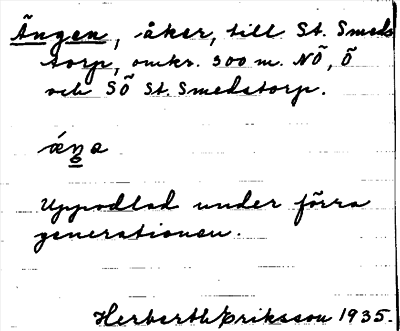 Ängen, åker, till St. Smeds
torp, omkr. 300 m. NÖ, Ö
och SÖ St. Smedstorp.
Uppodlad under förra
generationen.
Herberth Eriksson 1935.